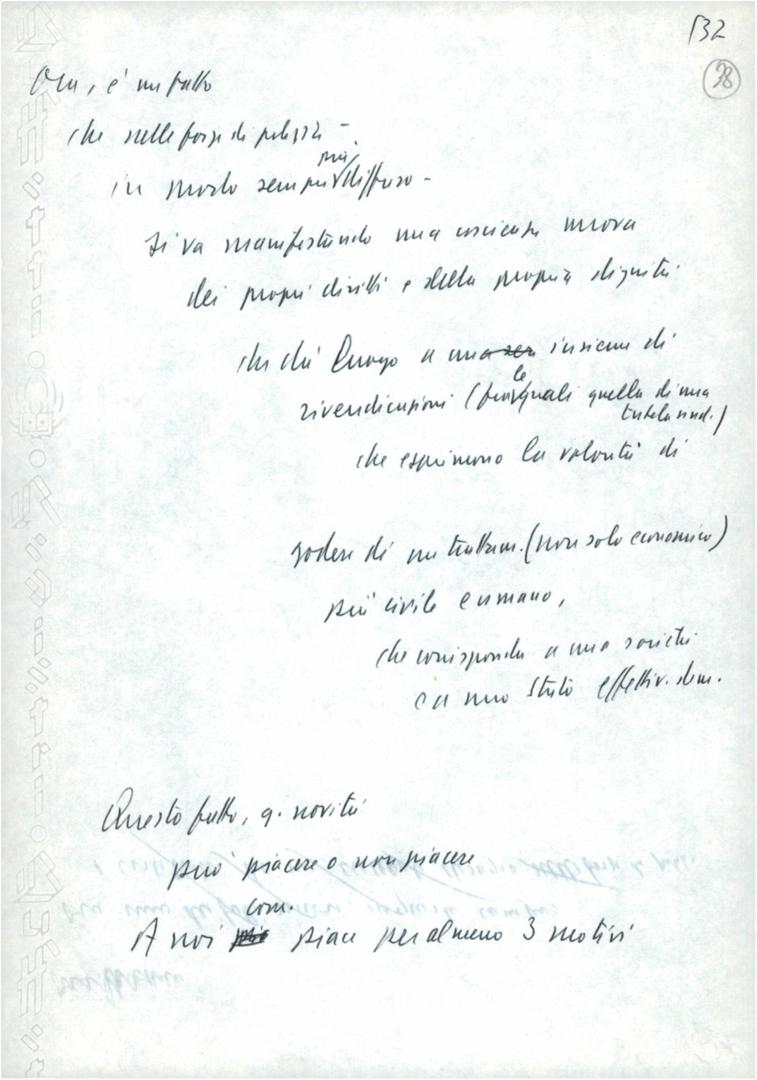 132
38
Ora, è un fatto
che nelle forze di polizia –
in modo sempre più diffuso –
si va manifestando una coscienza nuova
dei propri diritti e della propria dignità
che dà luogo a una insieme di
rivendicazioni (fra le quali quella di una
tutela sind.)
che esprimono la volontà di
godere di un trattam. (non solo economico)
più civile e umano,
che corrisponda a una società
e a uno Stato effettiv. dem.
Questo fatto, q. novità
può piacere o non piacere
A noi com. piace per almeno 3 motivi